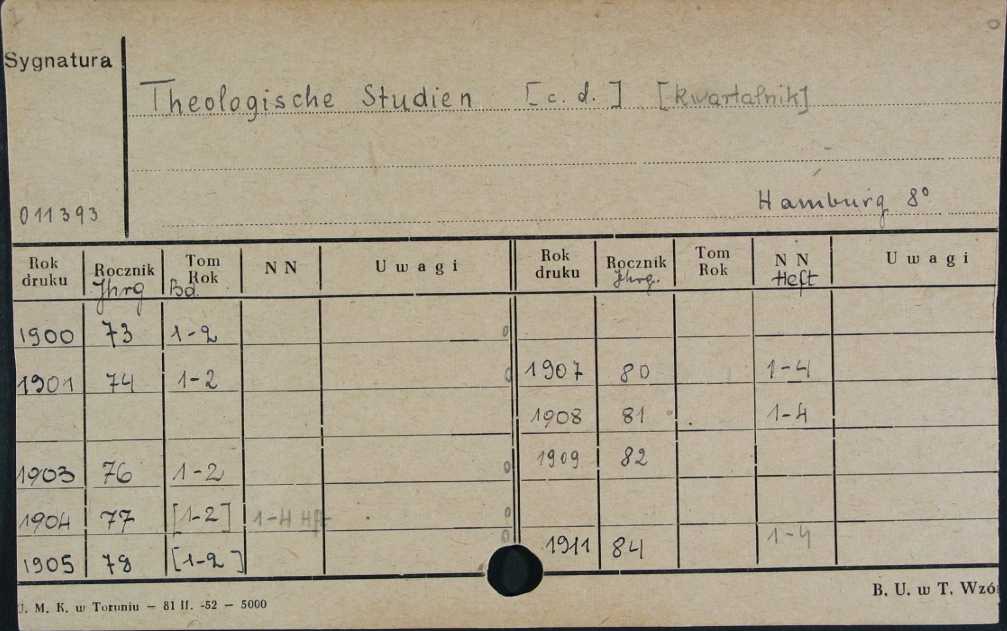 Sygnatura
Theologische Studien [c. d.] [kwartalnik]
Hamburg 8°
011393
Rok druku Rocznik Jhrg Tom Rok Bd. NN Uwagi Rok druku Rocznik Jhrg. Tom Rok NN Heft Uwagi
1900 73 1-2
1901 74 1-2 1907 80 1-4
1908 81 1-4
1903 76 1-2 1909 82
1904 77 [1-2] 1-4 Hft
1905 78 [1-2] 1911 84 1-4
U. M. K. w Toruniu — 81 II. -52 — 5000 B. U. w T. Wzó